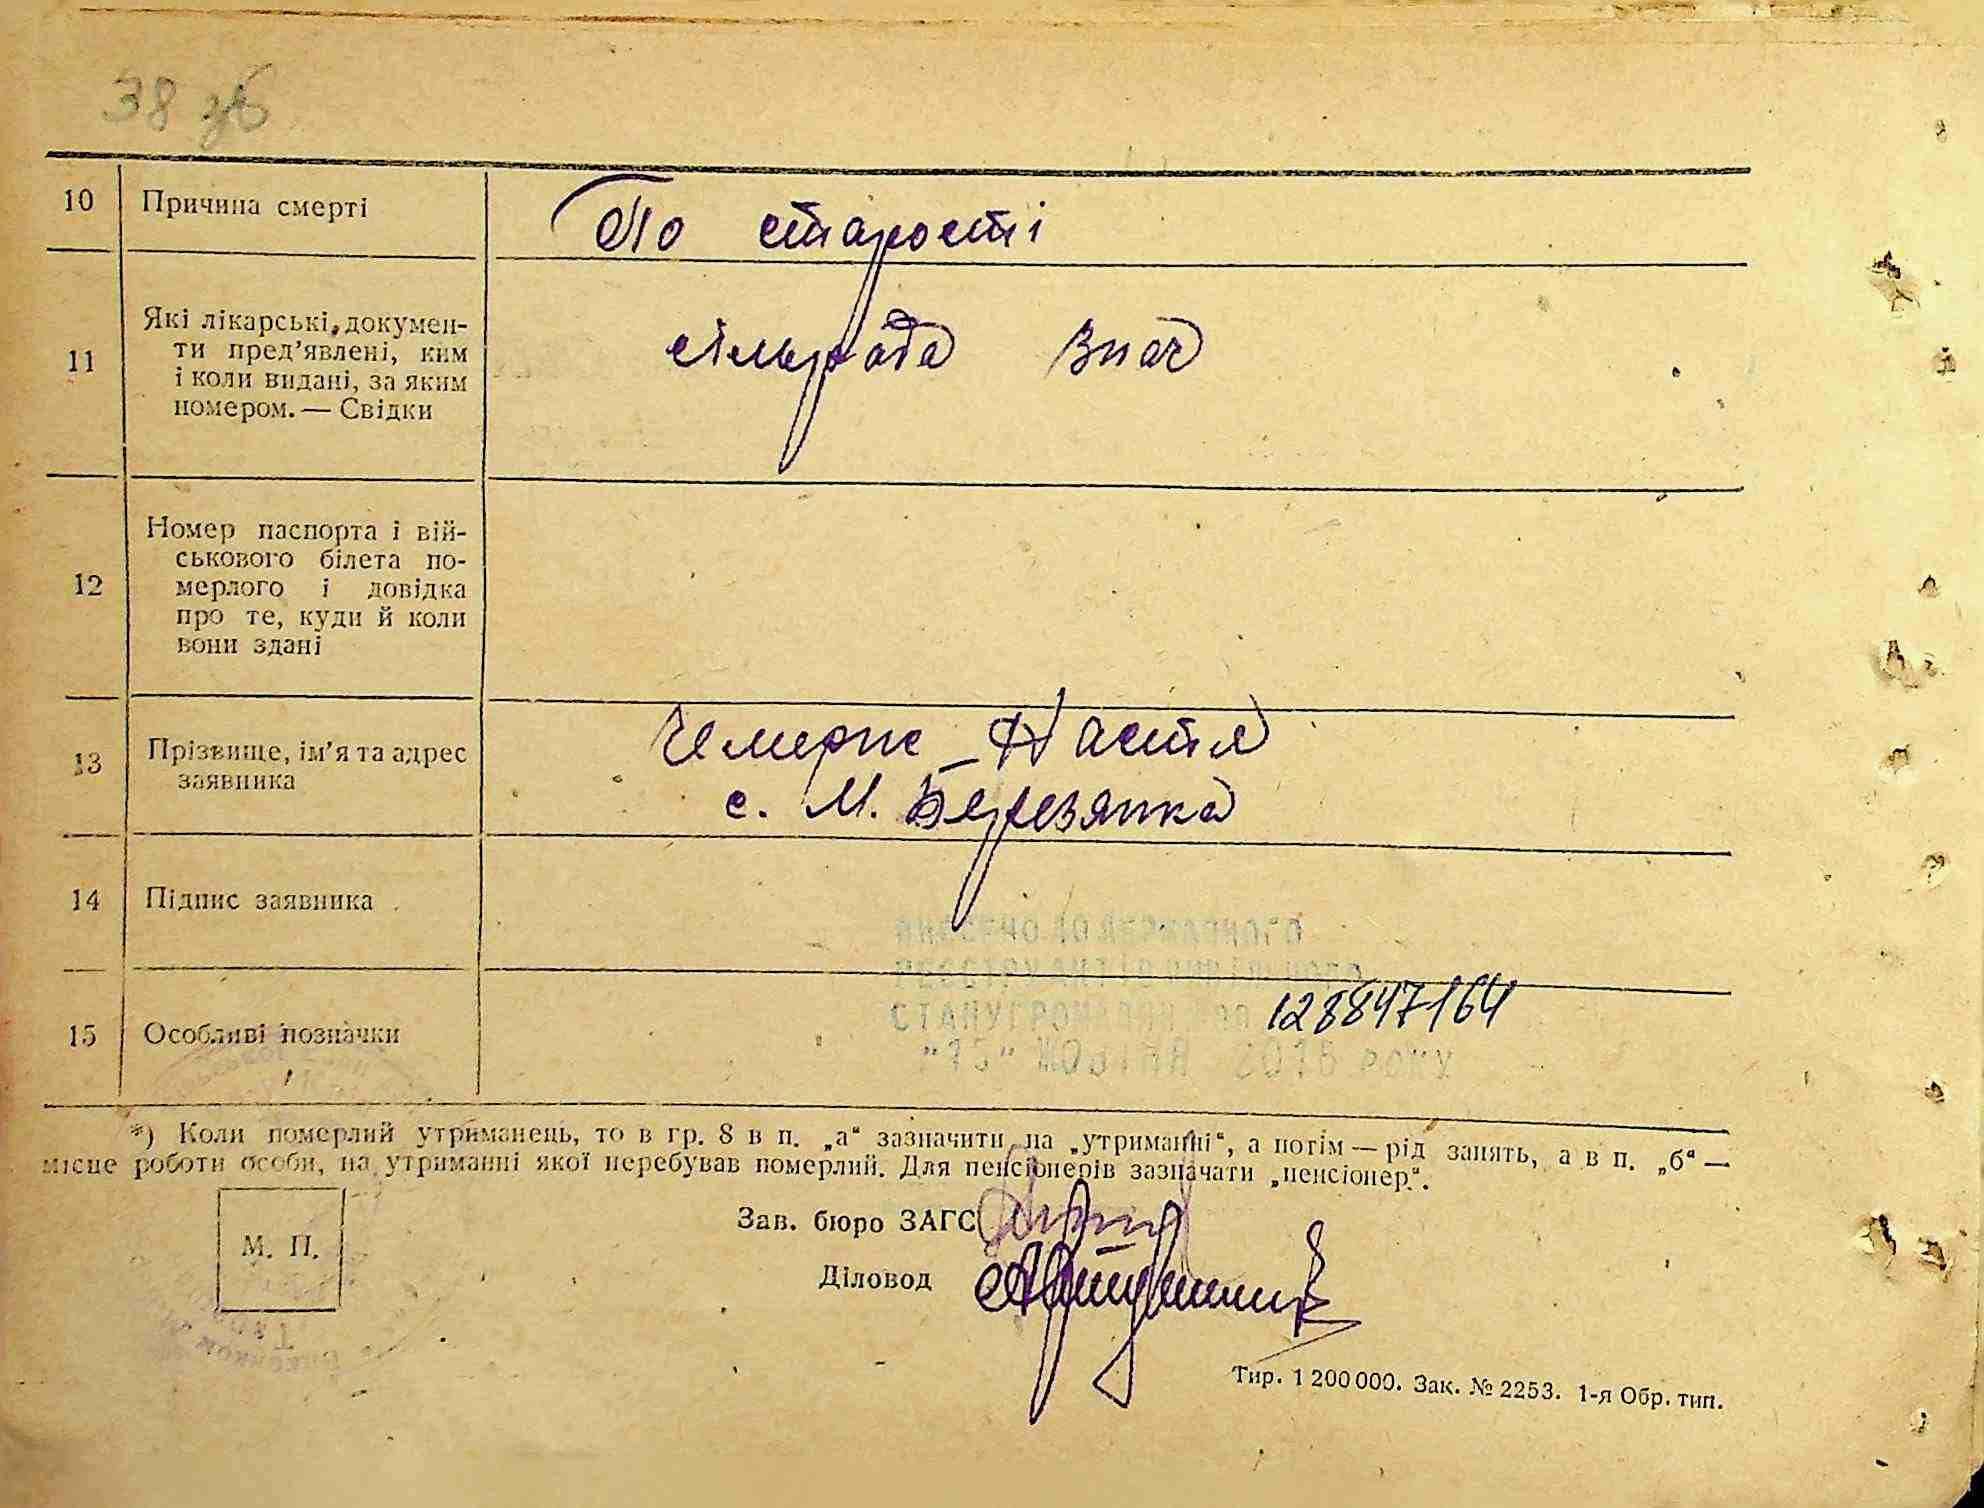 38 зб
10 Причина смерті По старості
11 Які лікарські документи
ти пред'явлені, ким
і коли видані, за яким
номером. — Свідки
сільрада знає
12 Номер паспорта і вій-
ськового білета по-
мерлого і довідка
про те, куди й коли
вони здані
13 Прізвище, ім'я та адрес
заявника
Чемерис Настя
с. М. Березянка
14 Підпис заявника
ВНЕСЕНО ДО ДЕРЖАВНОГО
РЕЄСТРУ АКТІВ ЦИВІЛЬНОГО
СТАНУ ГРОМАДЯН за 128847164
15 Особливі позначки
"15" ЖОВТНЯ 2016 РОКУ
*) Коли померлий утриманець, то в гр. 8 в п. „а“ зазначити на „утриманні“, а потім — рід занять, а в п. „б“ —
місце роботи особи, на утриманні якої перебував померлий. Для пенсіонерів зазначати „пенсіонер“.
М. П.
Зав. бюро ЗАГС
Діловод
Тир. 1 200 000. Зак. № 2253. 1-я Обр. тип.